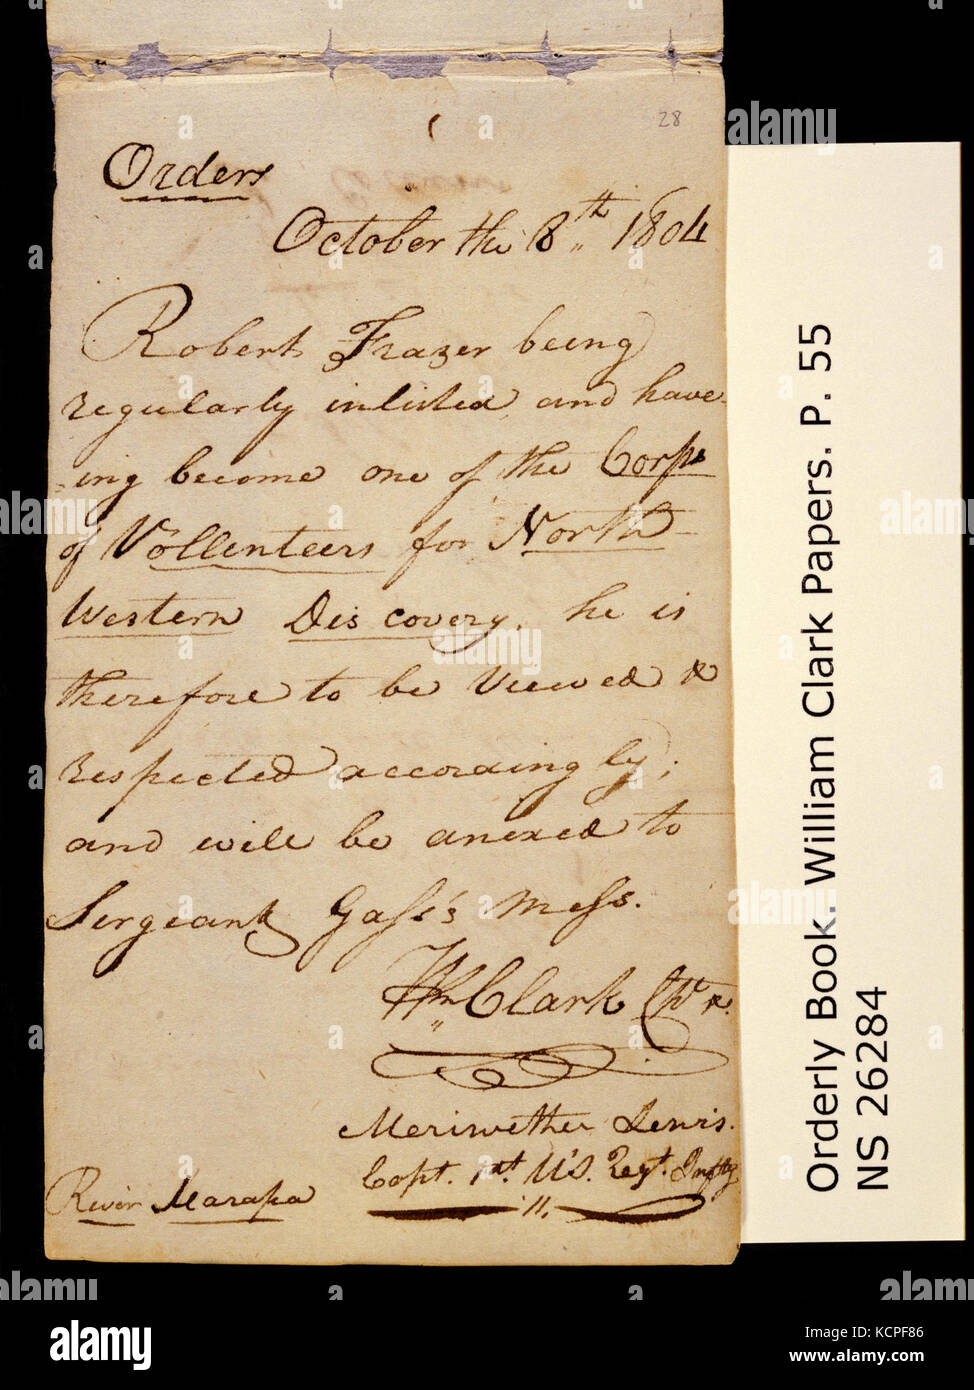 28
Orders
October the 8th 1804
Robert Frazer being
regularly inlisted, and have-
ing become one of the Corps
of Vollenteers for North
Western Discovery, he is
therefore to be Viewed &
respected accordingly;
and will be anexed to
Sergeant Gass's mess.
Wm Clark Cpt &.
Meriwether Lewis.
Capt. 1st. U'S. Regt. Infty
River Marapa
Orderly Book. William Clark Papers. P. 55
NS 26284
alamy
alamy
Image ID: KCPF86
www.alamy.com